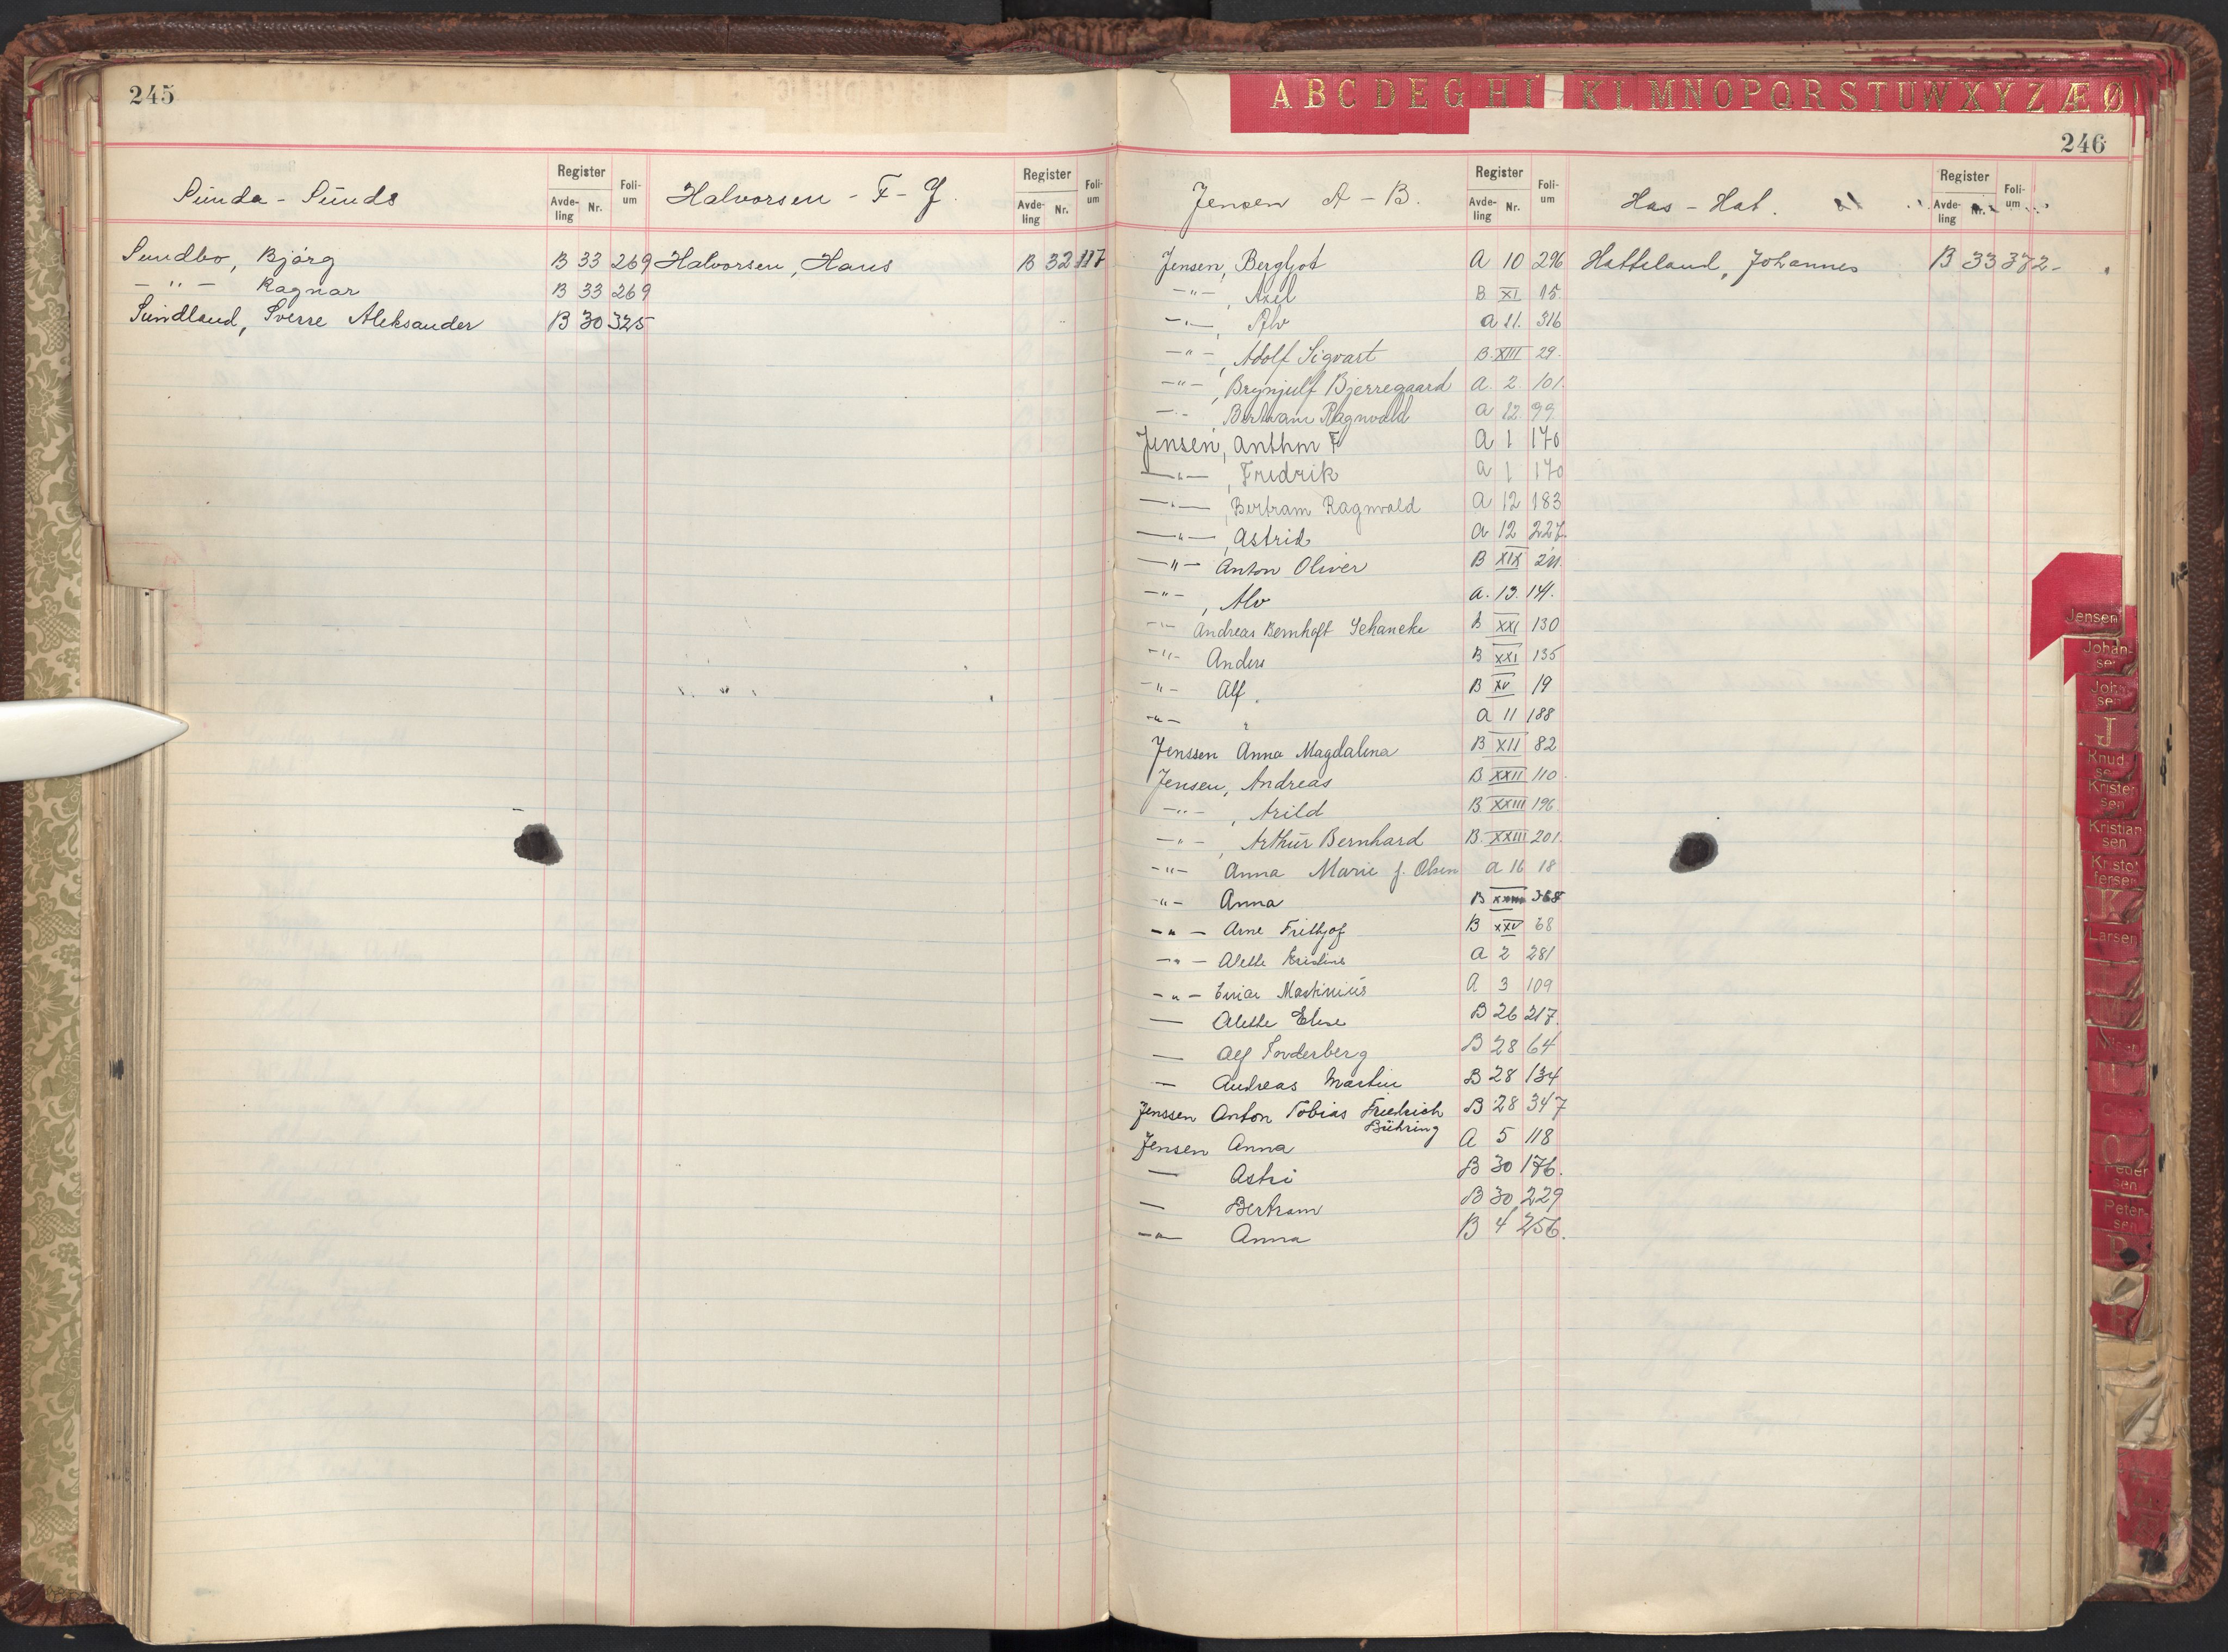 245
Sunda - Sunds
Register
Avde-ling Nr.
Foli-um
Sundbo, Bjørg B 33 269
— " — Ragnar B 33 269
Sundland, Sverre Aleksander B 30 325
Halvorsen - F - G.
Register
Avde-ling Nr.
Foli-um
Halvorsen, Hans B 32 117
A B C D E G H I K L M N O P Q R S T U W X Y Z Æ Ø
246
Jensen A - B.
Register
Avde-ling Nr.
Foli-um
Jensen, Bergljot A 10 296
— " —, Axel B XI 15.
— " —, Alv A 11. 316
— " —, Adolf Sigvart B. XIII 29.
— " —, Brynjulf Bjerregaard A. 2. 101.
— " — Bertram Ragnvald A 12 99
Jensen, Anthon F A 1 170
— " —, Fredrik A 1 170
— " —, Bertram Ragnvald A 12 183
— " —, Astrid A 12 227.
— " — Anton Oliver B XIX 211.
— " —, Alv A. 13. 141.
— " — Andreas Bernhoft Schaneke B XXI 130
— " — Anders B XXI 135
— " — Alf. B XV 19
— " — " A 11 188
Jenssen Anna Magdalena B XII 82
Jensen, Andreas B XXII 110.
— " —, Arild B. XXIII 196
— " —, Arthur Bernhard B. XXIII 201.
— " — Anna Marie f. Olsen A 16 18
— " — Anna B 368
— " — Arne Frithjof B XXV 68
— " — Alette Kristine A 2 281
— " — Martinius A 3 109
— Alette Elise B 26 217.
— Alf Sonderberg B 28 64
— Andreas Martin B 28 134
Jenssen Anton Tobias Friedrich B 28 347
Bühring
Jensen Anna A 5 118
— Astri B 30 176.
— Bertram B 30 229
— " — Anna B 4 256.
Has - Hat.
Register
Avde-ling Nr.
Foli-um
Hatteland, Johannes B 33 372
Jensen
Johan-sen
J
Knud-
Kristen
sen
Kristian
sen
Kristof
fersen
K
Larsen
Peder
sen
Peter-
sen
P